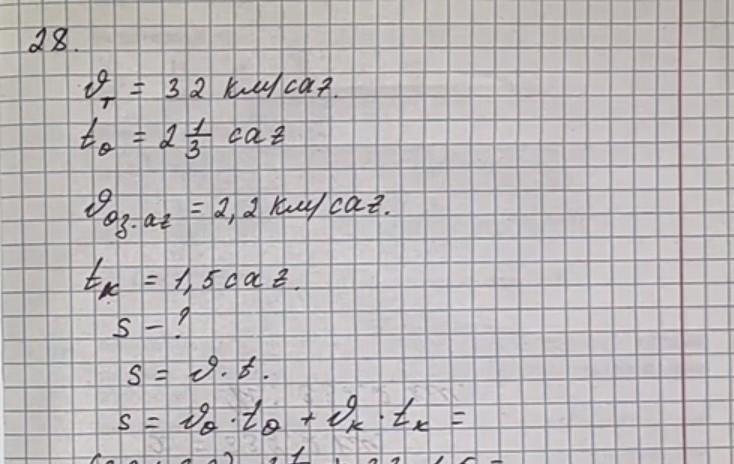 28.
𝜗т = 32 км/сағ.
tө = 2 1/3 сағ
𝜗өз.ағ = 2,2 км/сағ.
tк = 1,5 сағ.
s - ?
s = 𝜗 · t.
s = 𝜗ө · tө + 𝜗к · tк =